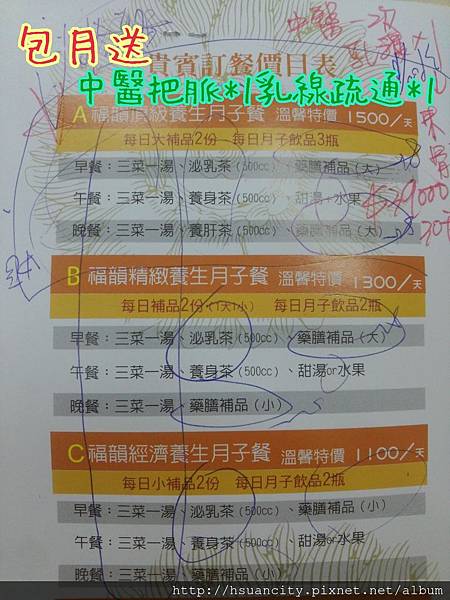 包月送
中醫把脈*1乳線疏通*1
中醫一次
貴賓訂餐價目表
A 福韻頂級養生月子餐 溫馨特價 1500/天
每日大補品2份 每日月子飲品3瓶
早餐：三菜一湯、泌乳茶(500cc)、藥膳補品(大)
午餐：三菜一湯、養身茶(500cc)、甜湯+水果
晚餐：三菜一湯、養肝茶(500cc)、藥膳補品(大)
39000
B 福韻精緻養生月子餐 溫馨特價 1300/天
每日補品2份(1大1小) 每日月子飲品2瓶
早餐：三菜一湯、泌乳茶(500cc)、藥膳補品(大)
午餐：三菜一湯、養身茶(500cc)、甜湯or水果
晚餐：三菜一湯、藥膳補品(小)
C 福韻經濟養生月子餐 溫馨特價 1100/天
每日小補品2份 每日月子飲品2瓶
早餐：三菜一湯、泌乳茶(500cc)、藥膳補品(小)
午餐：三菜一湯、養身茶(500cc)、甜湯or水果
晚餐：三菜一湯、藥膳補品(小)
http://hsuancity.pixnet.net/album